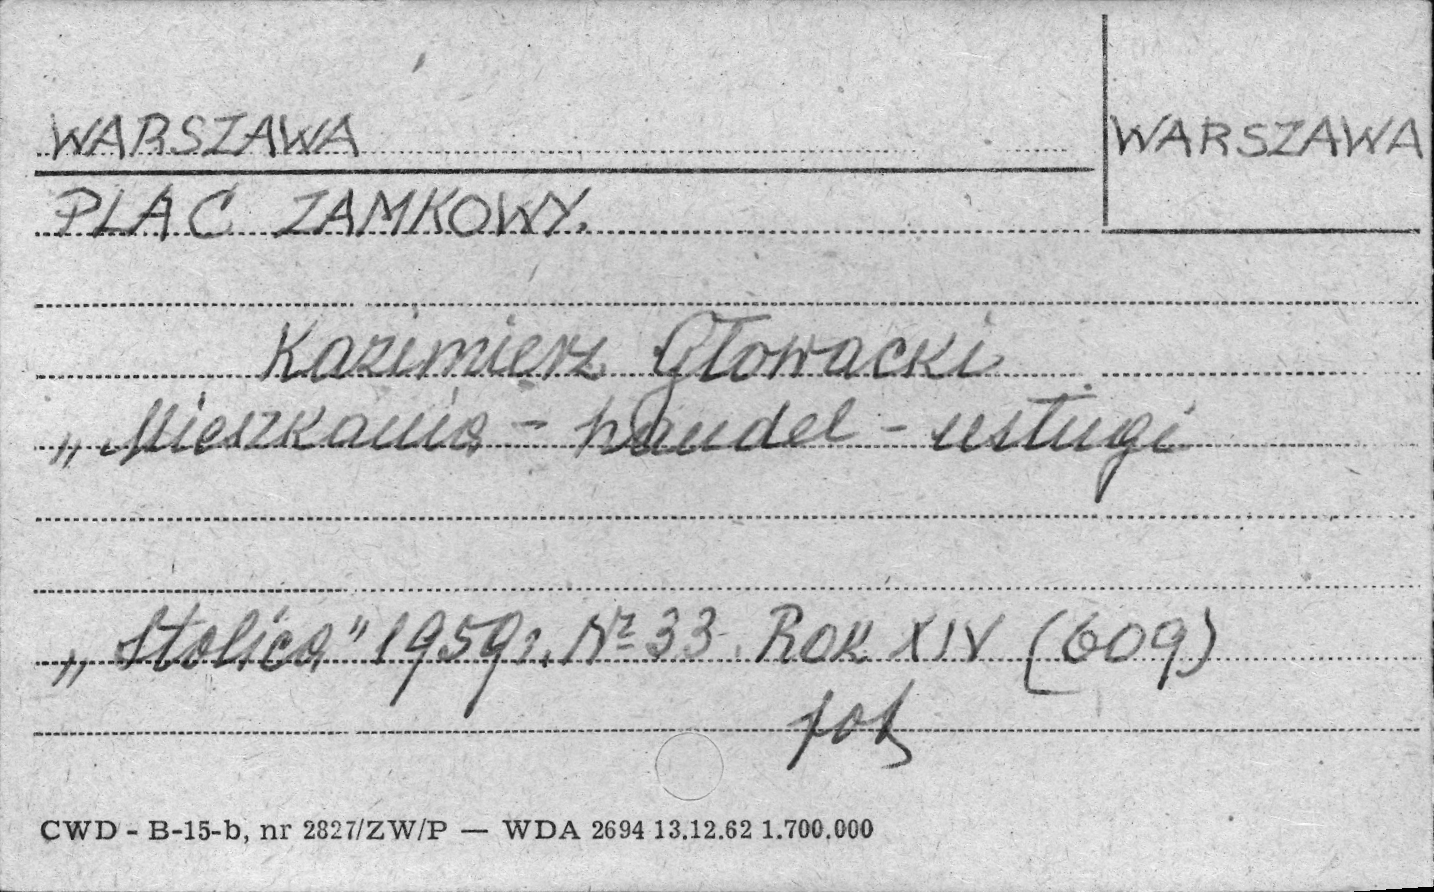 WARSZAWA
WARSZAWA
PLAC ZAMKOWY.
Kazimierz Głowacki
„Mieszkania - handel - usługi
„Stolica" 1959r. Nr 33. Rok XIV (609)
fot
CWD - B-15-b, nr 2827/ZW/P — WDA 2694 13.12.62 1.700.000